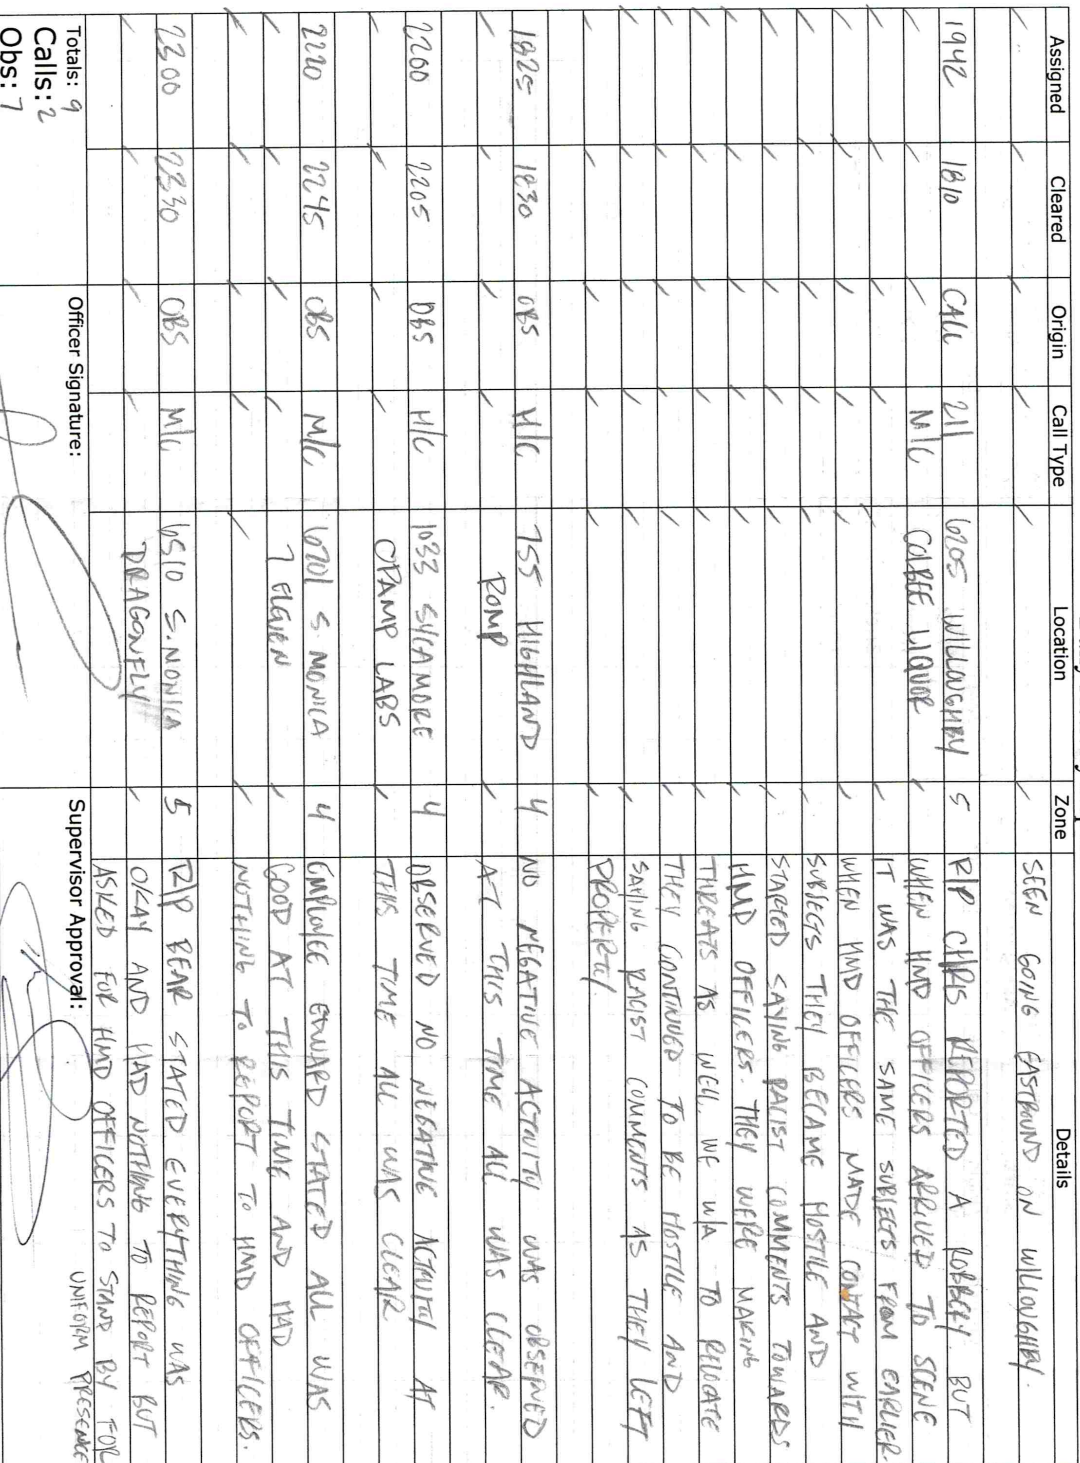 Assigned Cleared Origin Call Type Location Zone Details
SEEN GOING EASTBOUND ON WILLOUGHBY.
1942 1810 CALL 211 6205 WILLOUGHBY 5 R/P CHRIS REPORTED A ROBBERY BUT
M/C COLBEE LIQUOR WHEN HMD OFFICERS ARRIVED TO SCENE
IT WAS THE SAME SUBJECTS FROM EARLIER.
WHEN HMD OFFICERS MADE CONTACT WITH
SUBJECTS THEY BECAME HOSTILE AND
STARTED SAYING RACIST COMMENTS TOWARDS
HMD OFFICERS. THEY WERE MAKING
THREATS AS WELL. WE W/A TO RELOCATE
THEY CONTINUED TO BE HOSTILE AND
SAYING RACIST COMMENTS AS THEY LEFT
PROPERTY.
1825 1830 OBS H/C 755 HIGHLAND 4 NO NEGATIVE ACTIVITY WAS OBSERVED
ROMP AT THIS TIME ALL WAS CLEAR.
2200 2205 OBS H/C 1033 SYCAMORE 4 OBSERVED NO NEGATIVE ACTIVITY AT
OPAMP LABS THIS TIME ALL WAS CLEAR
2220 2245 OBS M/C 6201 S. MONICA 4 EMPLOYEE EDWARD STATED ALL WAS
7 ELEVEN GOOD AT THIS TIME AND HAD
NOTHING TO REPORT TO HMD OFFICERS.
2300 2330 OBS M/C 6510 S. MONICA 5 R/P BEAR STATED EVERYTHING WAS
DRAGONFLY OKAY AND HAD NOTHING TO REPORT BUT
ASKED FOR HMD OFFICERS TO STAND BY FOR
UNIFORM PRESENCE
Totals: 9
Calls: 2
Obs: 7
Officer Signature:
Supervisor Approval: